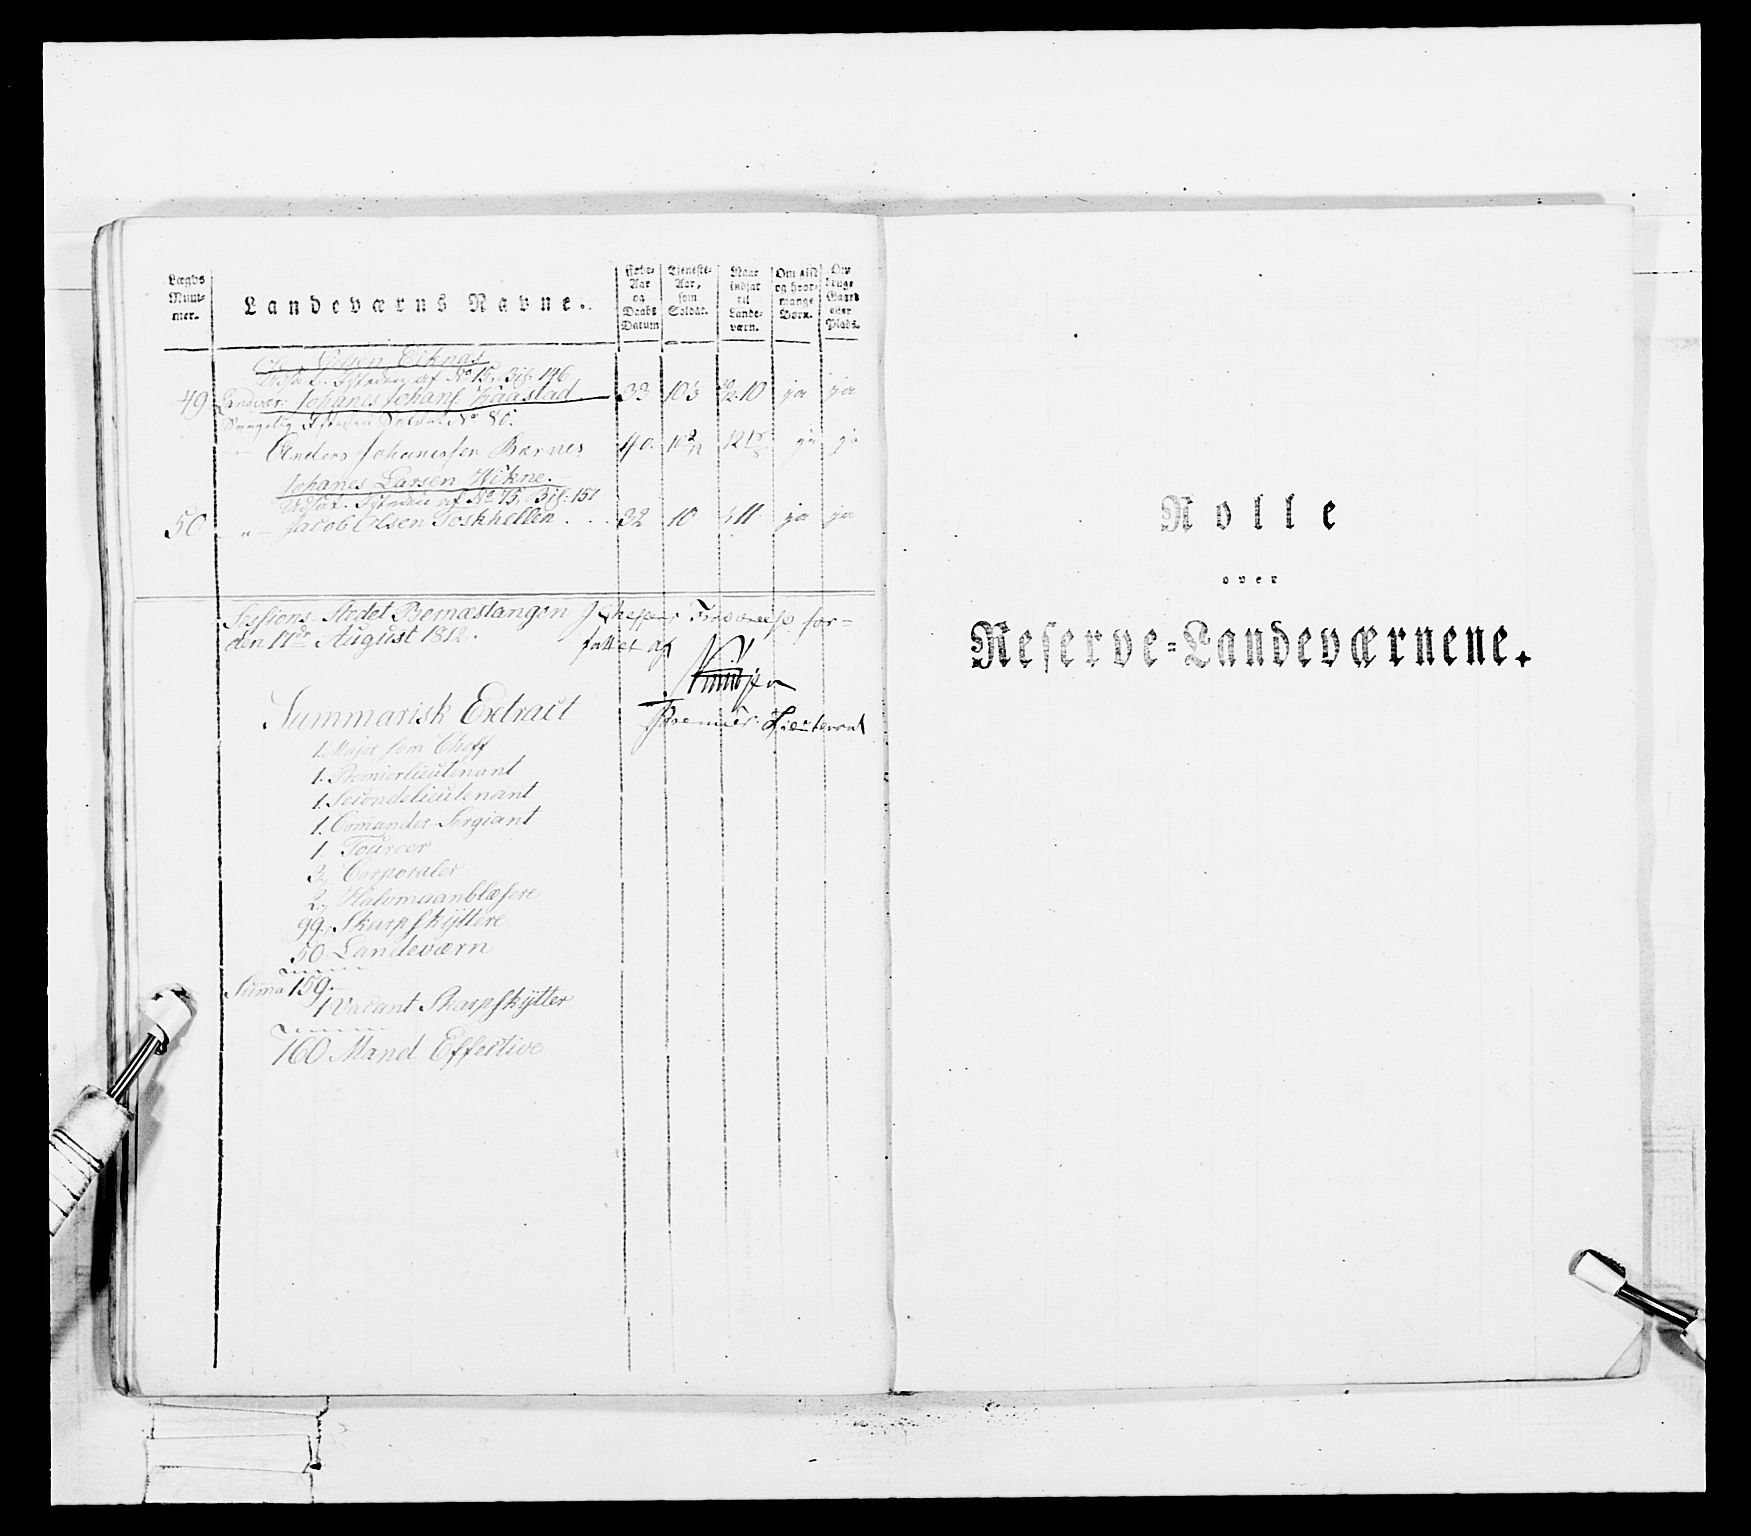 Lægds Num-mer.
Landeværns Navne.
Føde-Aar og Daabs Datum
Tjeneste-Aar, som Soldat.
Naar indsat til Lande-værn.
Om gift og hvor-mange Børn.
Om bruge Gaard eller Plads.
Nelsen Eiknas
Udsat. Istæden af No 15, Bif: 146
49 Landvær: Johanes Johans. Kaastad 33 10 10 ja ja
Istæden Soldat No 80.
Anders Johanessen Bernes 40. 12 ja ja
Johanes Larsen Wikne.
Udsat. Istæden af No 75, Bif: 151
50 " Jacob Olsen Toskhellen . . . 32 10 11 ja ja
Sessions Stedet Bomæstangen
den 17de August 1812.
I Chefens Fraværelse for-
fattet af
Knudsen
Premier Lieutenant
Summarisk Extract
1. Major som Cheff
1. Premierlieutenant
1. Secondelieutenant
1. Comander Sergiant
1. Foureer
3, Corporaler
2, Halvmaanblæsere
99, Skarpskÿttere
50 Landeværn
Suma 159.
1 Vacant Skarpskÿtter
160 Mand Effective
Rolle
over
Reserve-Landeværnene.